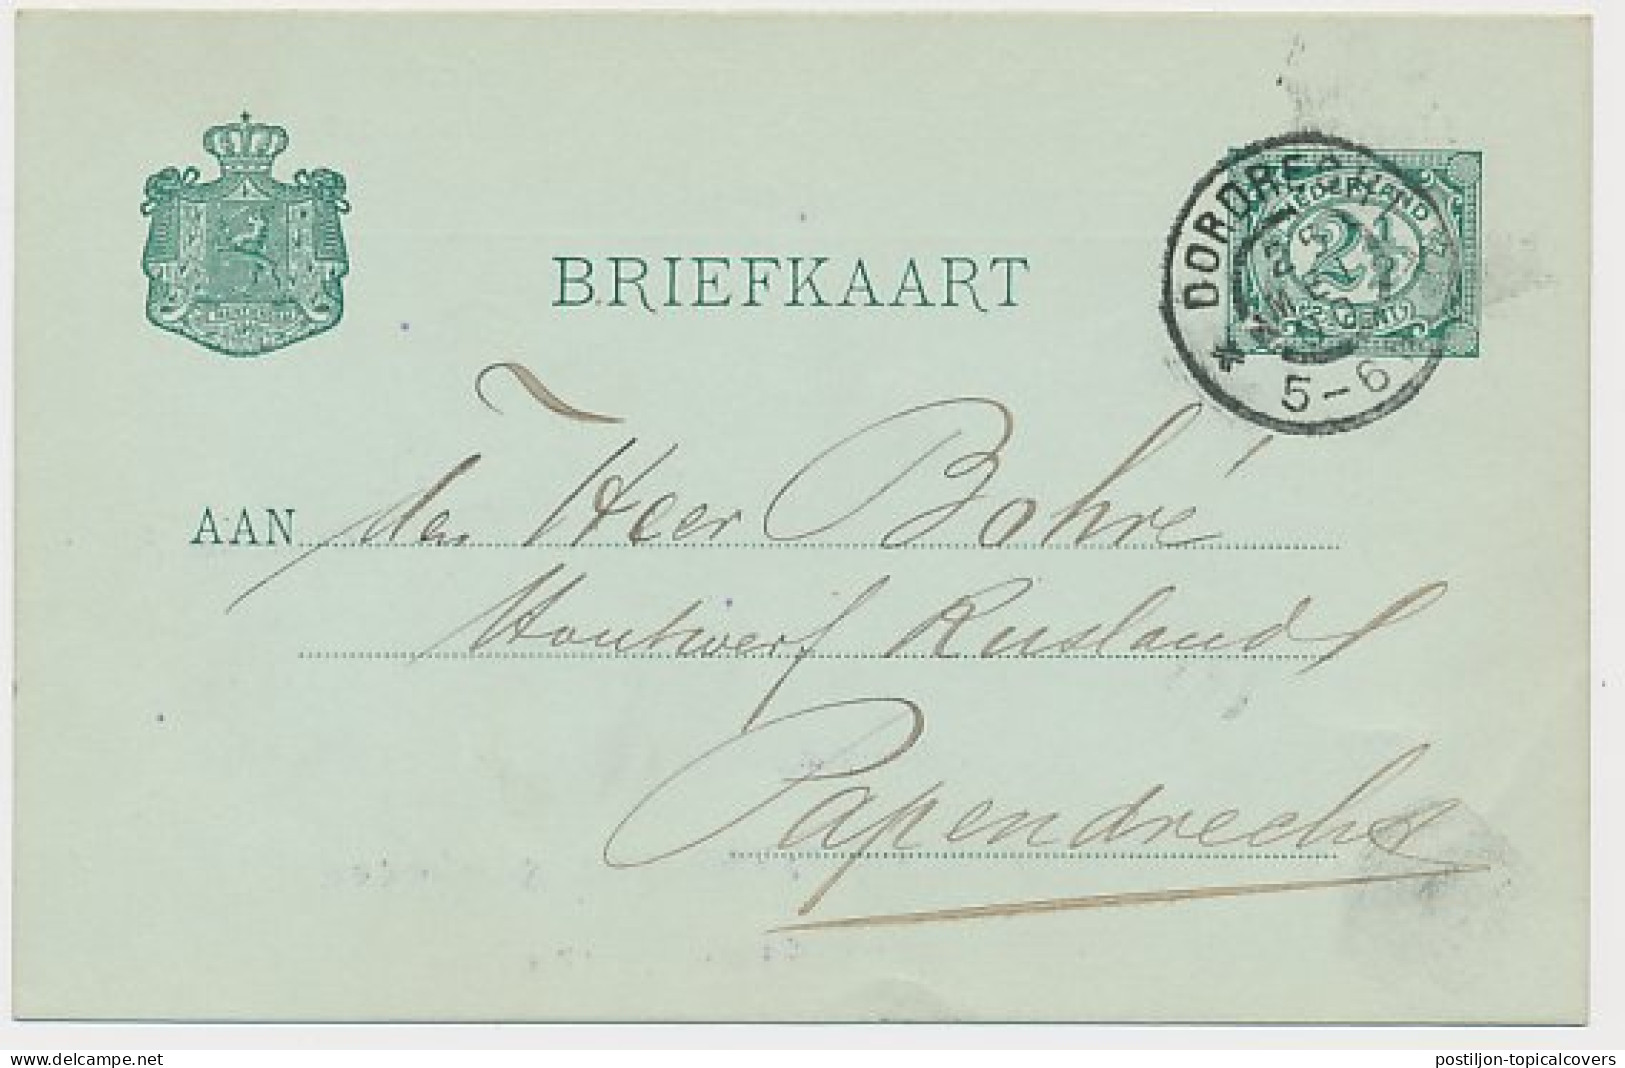 BRIEFKAART
NEDERLAND
2½
CENT
DORDRECHT
N.M.
5-6
AAN den Heer Bohré
Houtwerf Rusland
Papendrecht
delcampe.net
postiljon-topicalcovers